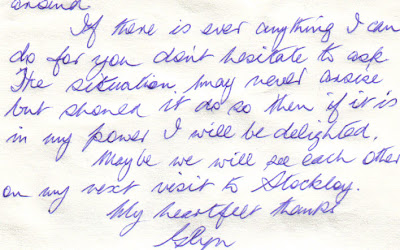 around
If there is ever anything I can
do for you don't hesitate to ask
The situation may never arise
but should it do so then if it is
in my power I will be delighted.
Maybe we will see each other
on my next visit to Stockley.
My heartfelt thanks
Glyn